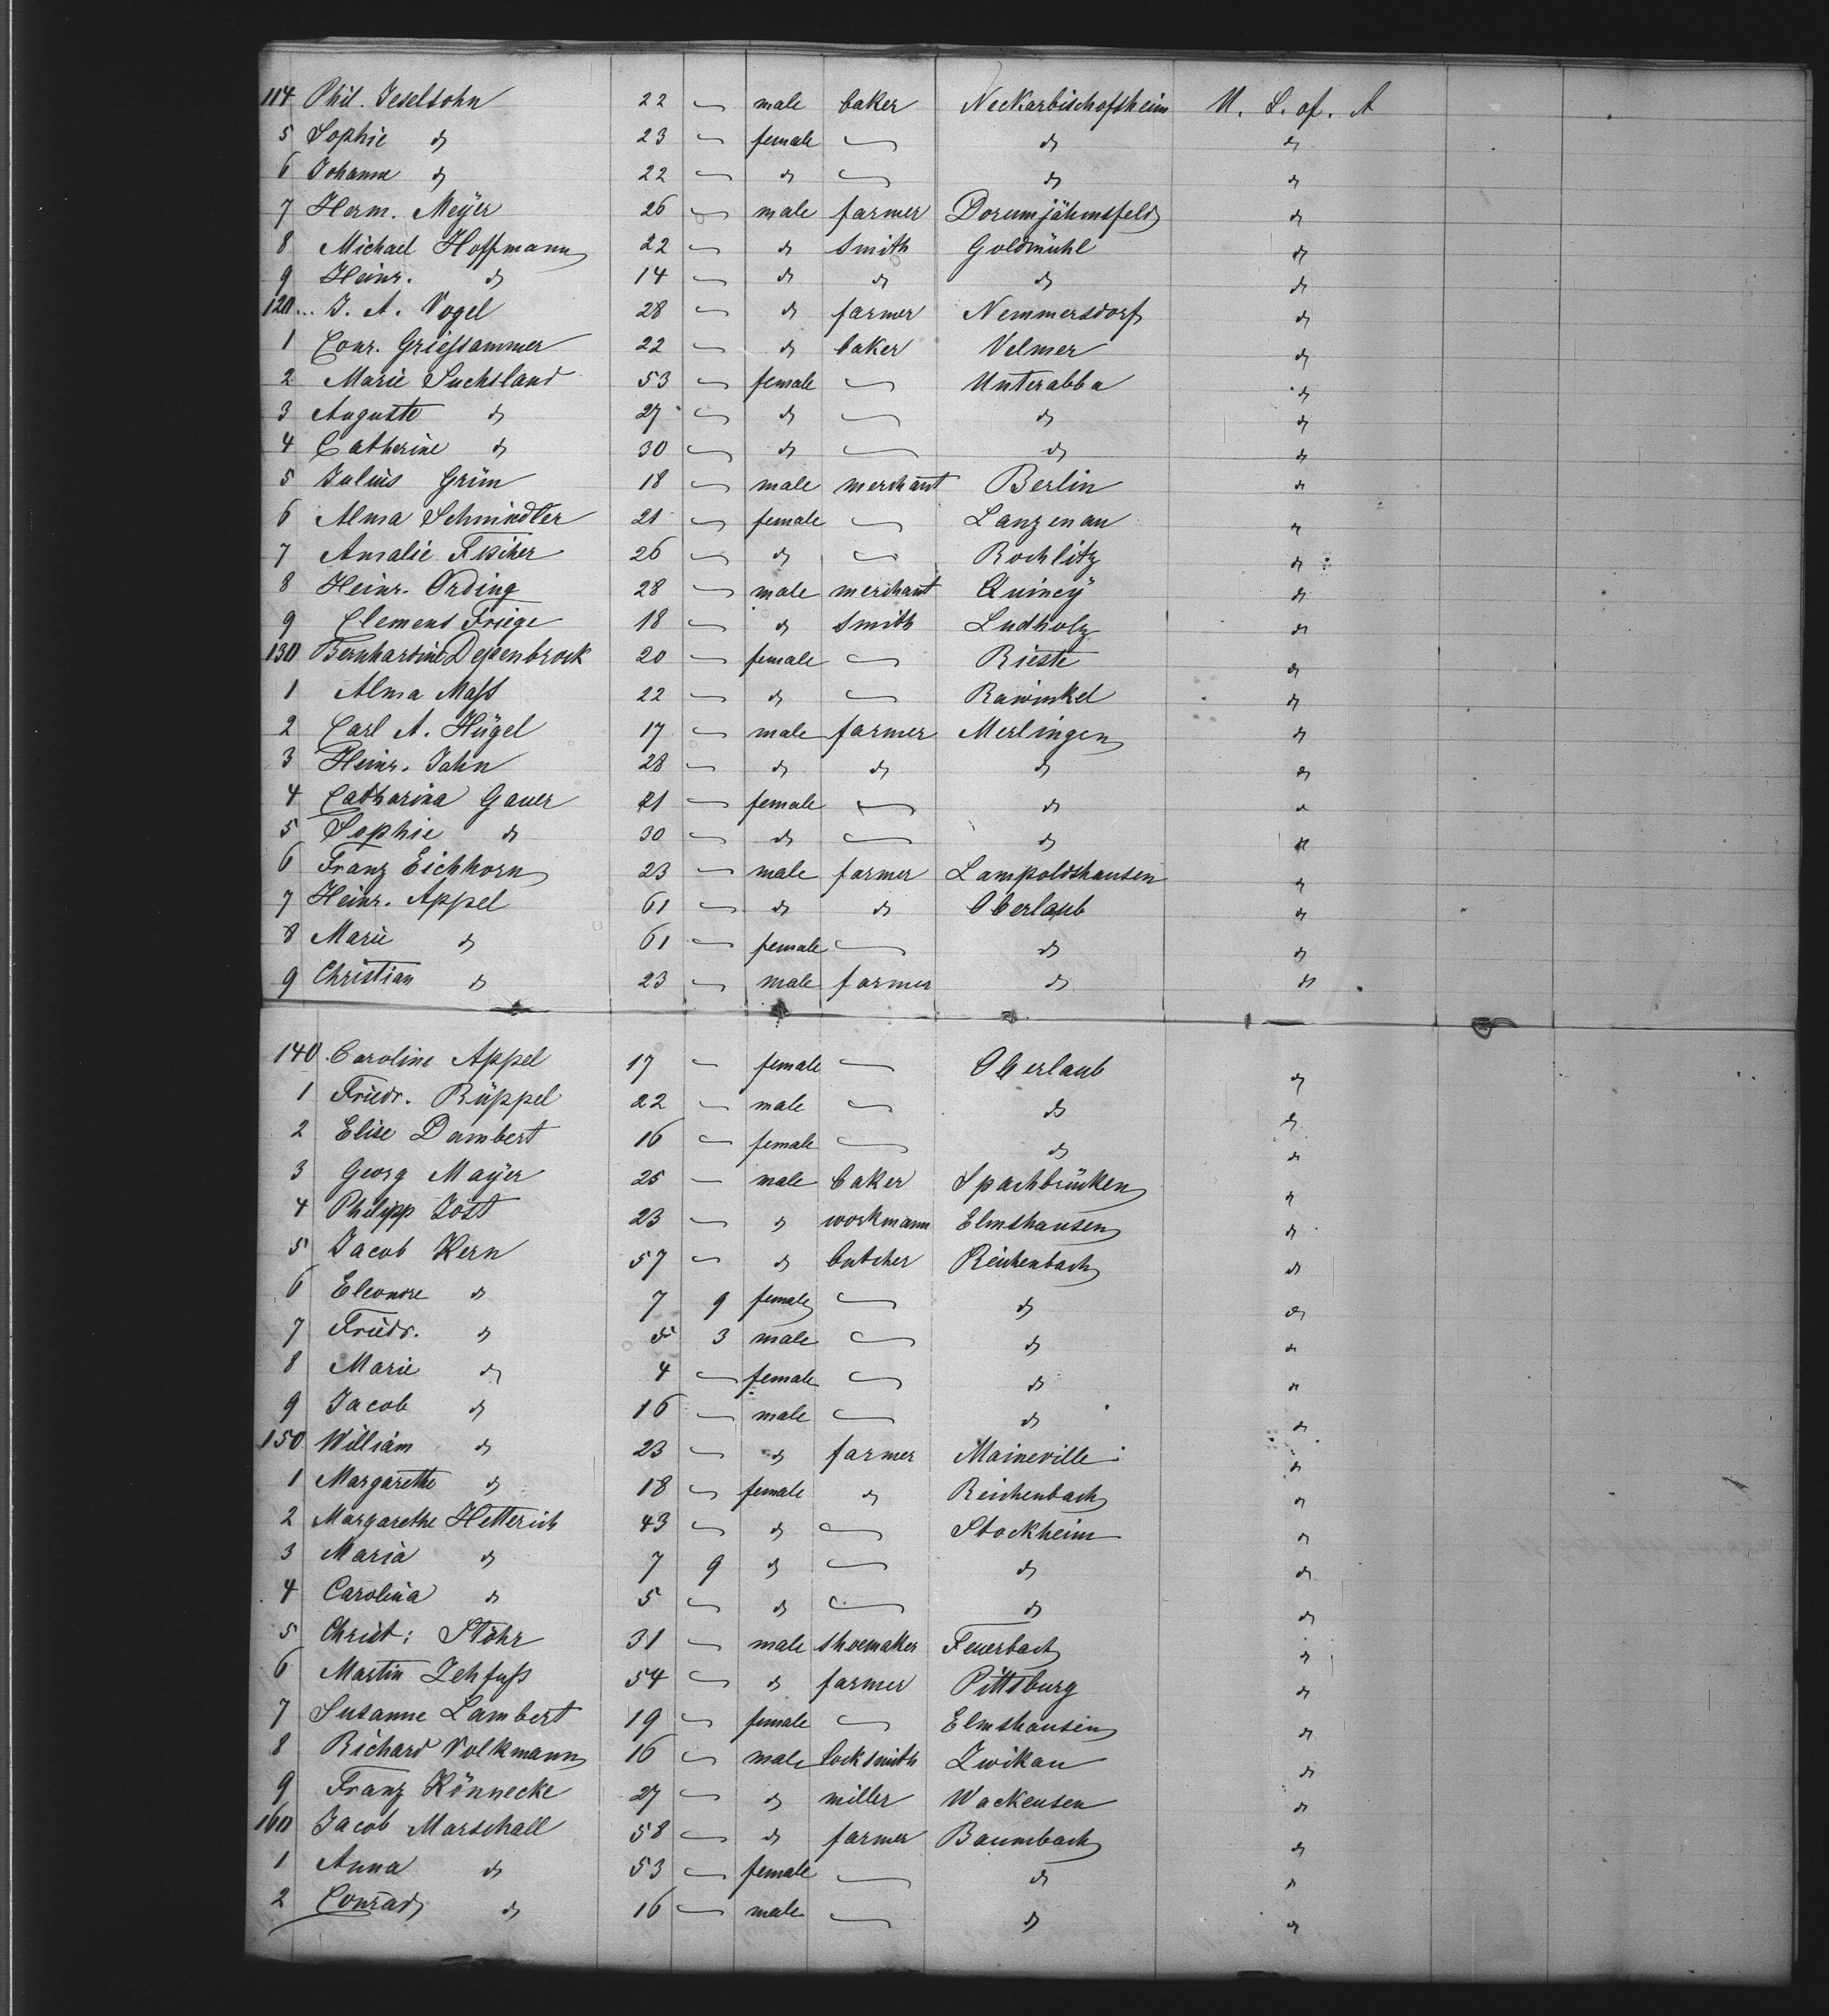 114 Phil. Jeselsohn 22 — male baker Neckarbischofsheim U. S. of. A
5 Sophie do 23 — female — do do
6 Johanna do 22 — do — do do
7 Herm. Meÿer 26 — male farmer Dorumjähmsfeld do
8 Michael Hoffmann 22 — do Smith Goldmühl do
9 Heinr. do 14 — do do do do
120 J. A. Vogel 28 — do farmer Nemmersdorf do
1 Conr. Grießammer 22 — do baker Velmer do
2 Marie Suchsland 53 — female — Unterabba do
3 Auguste do 27 — do — do do
4 Catherine do 30 — do — do do
5 Julius Grün 18 — male merchant Berlin do
6 Alma Schmidler 21 — female — Lanzenau do
7 Amalie Fischer 26 — do — Rochlitz do
8 Heinr. Ording 28 — male merchant Quincÿ do
9 Clemens Friege 18 — do Smith Ludholz do
130 Bernhardine Deßenbrock 20 — female — Rieste do
1 Alma Maßs 22 — do — Rawinkel do
2 Carl A. Hügel 17 — male farmer Merlingen do
3 Heinr. Jahn 28 — do do do do
4 Catharina Gauer 21 — female — do do
5 Sophie do 30 — do — do do
6 Franz Eichhorn 23 — male farmer Lampoldshausen do
7 Heinr. Appel 61 — do do Oberlaub do
8 Marie do 61 — female — do do
9 Christian do 23 — male farmer do do
140 Caroline Appel 17 — female — Oberlaub do
1 Friedr. Rüppel 22 — male — do do
2 Elise Dambert 16 — female — do do
3 Georg Maÿer 25 — male baker Spachbrücken do
4 Philipp Jost 23 — do workmann Elmshausen do
5 Jacob Kern 57 — do butcher Reichenbach do
6 Eleonore do 7 9 female — do do
7 Friedr. do 5 3 male — do do
8 Marie do 4 — female — do do
9 Jacob do 16 — male — do do
150 William do 23 — do farmer Maineville do
1 Margarethe do 18 — female do Reichenbach do
2 Margarethe Hetterich 43 — do — Stockheim do
3 Maria do 7 9 do — do do
4 Carolina do 5 — do — do do
5 Christ: Stöhr 31 — male shoemaker Feuerbach do
6 Martin Zehfuß 54 — do farmer Pittsburg do
7 Susanne Lambert 19 — female — Elmshausen do
8 Richard Volkmann 16 — male locksmith Zwikau do
9 Franz Könnecke 27 — do miller Wackensen do
160 Jacob Marschall 58 — do farmer Baumbach do
1 Anna do 53 — female — do do
2 Conrad do 16 — male — do do